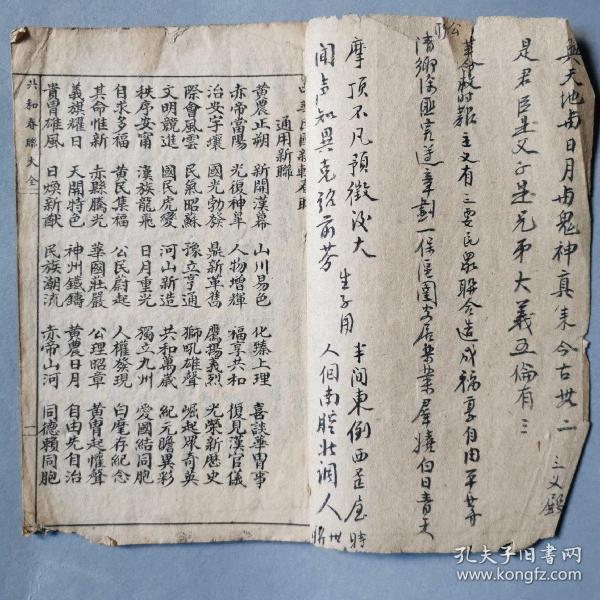 是君臣是父子是兄弟大義五倫有三
三义殿
公所
革命救时艱主义有三要民衆聯合造成福享自由平等
清鄉除匪一保區團安居樂業羣嬉白日青天
摩頂不凡預徵浚大
聞声知異克紹前芳
生子用
半间東倒西歪屋
人個南腔北調人
通用新聯
黃農正朔 新開漢幕 山川易色 化臻上理 喜談華冑事
赤帝當陽 光復神皋 人物增輝 福享共和 復見漢官儀
治安宇壤 國光勃發 鼎新革舊 鷹揚義烈 光榮新歷史
際會風雲 民氣昭蘇 豫立亨通 獅吼雄聲 崛起眾奇英
文明競進 國民虎變 河山新造 共和萬歲 紀元瞻異彩
秩序安甯 漢族龍飛 日月重光 獨立九州 愛國結同胞
自求多福 黃民集福 公民蔚起 人權發現 白麾存紀念
其命惟新 赤縣騰光 華國莊嚴 公理昭章 黃冑起懽聲
義旗耀日 天開特色 神州鐵鑄 黃農日月 自由先自治
貴冑雄風 日煥新猷 民族潮流 赤帝山河 同德賴同胞
共和春聯大全 二
孔夫子旧书网
www.kongfz.com